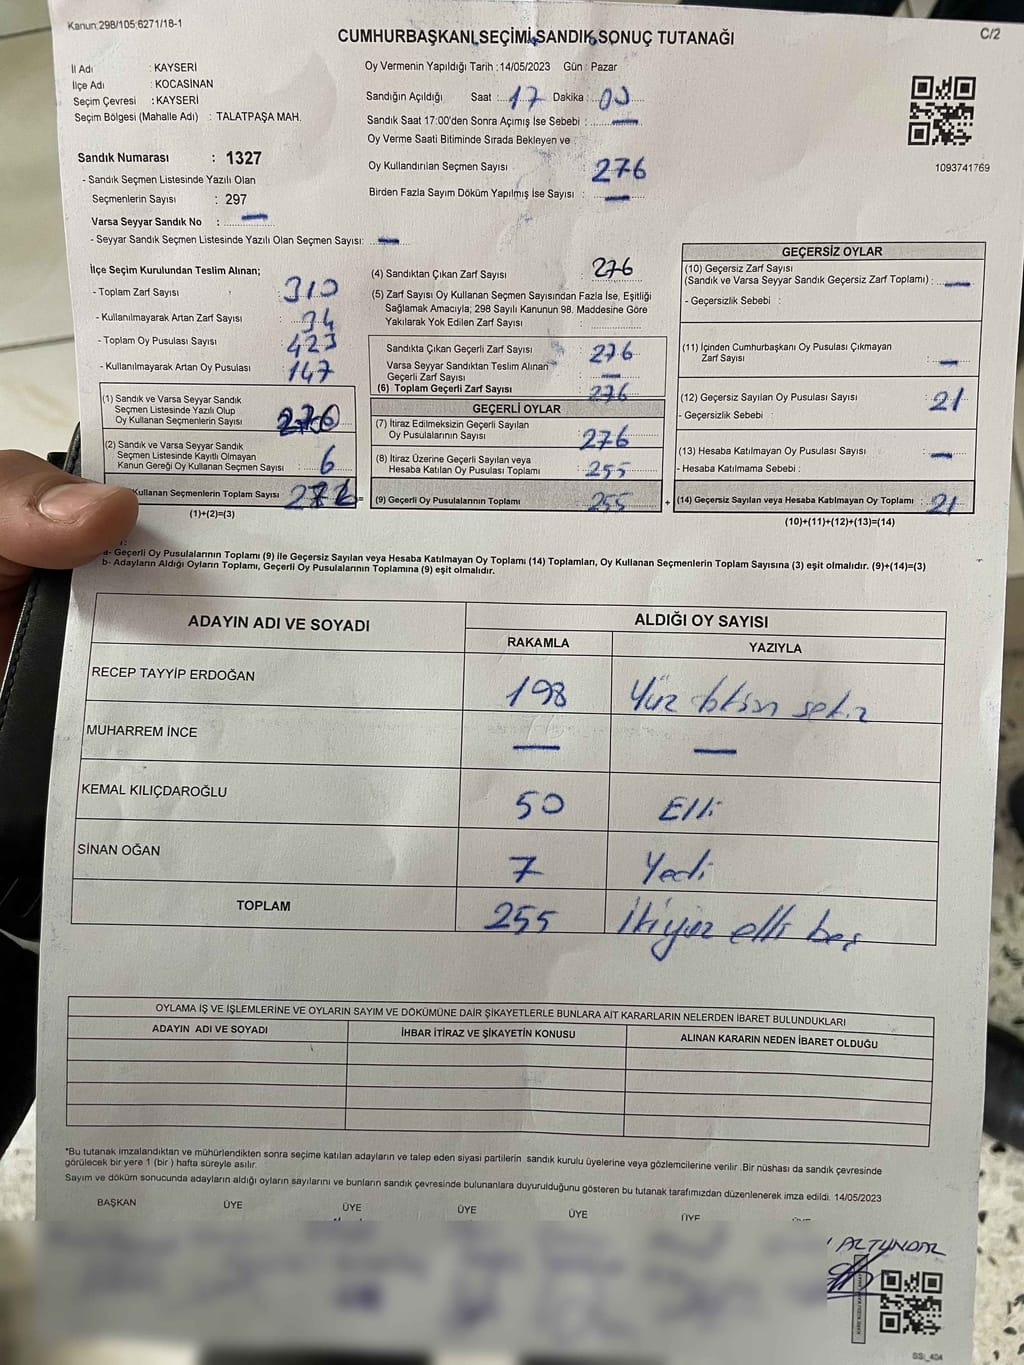 Kanun:298/105;6271/18-1
C/2
CUMHURBAŞKANI SEÇİMİ SANDIK SONUÇ TUTANAĞI
İl Adı : KAYSERİ
İlçe Adı : KOCASİNAN
Seçim Çevresi : KAYSERİ
Seçim Bölgesi (Mahalle Adı) : TALATPAŞA MAH.
Sandık Numarası : 1327
- Sandık Seçmen Listesinde Yazılı Olan
Seçmenlerin Sayısı : 297
Varsa Seyyar Sandık No : —
- Seyyar Sandık Seçmen Listesinde Yazılı Olan Seçmen Sayısı: —
Oy Vermenin Yapıldığı Tarih :14/05/2023 Gün : Pazar
Sandığın Açıldığı Saat : 17 Dakika : 00
Sandık Saat 17:00'den Sonra Açımış İse Sebebi : —
Oy Verme Saati Bitiminde Sırada Bekleyen ve
Oy Kullandırılan Seçmen Sayısı : 276
Birden Fazla Sayım Döküm Yapılmış İse Sayısı : —
1093741769
İlçe Seçim Kurulundan Teslim Alınan;
- Toplam Zarf Sayısı : 310
- Kullanılmayarak Artan Zarf Sayısı : 34
- Toplam Oy Pusulası Sayısı : 423
- Kullanılmayarak Artan Oy Pusulası : 147
(1) Sandık ve Varsa Seyyar Sandık
Seçmen Listesinde Yazılı Olup
Oy Kullanan Seçmenlerin Sayısı :
(2) Sandık ve Varsa Seyyar Sandık
Seçmen Listesinde Kayıtlı Olmayan
Kanun Gereği Oy Kullanan Seçmen Sayısı : 6
Kullanan Seçmenlerin Toplam Sayısı :
(1)+(2)=(3)
(4) Sandıktan Çıkan Zarf Sayısı : 276
(5) Zarf Sayısı Oy Kullanan Seçmen Sayısından Fazla İse, Eşitliği
Sağlamak Amacıyla; 298 Sayılı Kanunun 98. Maddesine Göre
Yakılarak Yok Edilen Zarf Sayısı :
Sandıkta Çıkan Geçerli Zarf Sayısı : 276
Varsa Seyyar Sandıktan Teslim Alınan
Geçerli Zarf Sayısı : —
(6) Toplam Geçerli Zarf Sayısı : 276
GEÇERLİ OYLAR
(7) İtiraz Edilmeksizin Geçerli Sayılan
Oy Pusulalarının Sayısı : 276
(8) İtiraz Üzerine Geçerli Sayılan veya
Hesaba Katılan Oy Pusulası Toplamı : 255
(9) Geçerli Oy Pusulalarının Toplamı : 255
GEÇERSİZ OYLAR
(10) Geçersiz Zarf Sayısı
(Sandık ve Varsa Seyyar Sandık Geçersiz Zarf Toplamı) : —
- Geçersizlik Sebebi :
(11) İçinden Cumhurbaşkanı Oy Pusulası Çıkmayan
Zarf Sayısı : —
(12) Geçersiz Sayılan Oy Pusulası Sayısı : 21
- Geçersizlik Sebebi :
(13) Hesaba Katılmayan Oy Pusulası Sayısı : —
- Hesaba Katılmama Sebebi :
(14) Geçersiz Sayılan veya Hesaba Katılmayan Oy Toplamı : 21
(10)+(11)+(12)+(13)=(14)
a- Geçerli Oy Pusulalarının Toplamı (9) ile Geçersiz Sayılan veya Hesaba Katılmayan Oy Toplamı (14) Toplamları, Oy Kullanan Seçmenlerin Toplam Sayısına (3) eşit olmalıdır. (9)+(14)=(3)
b- Adayların Aldığı Oyların Toplamı, Geçerli Oy Pusulalarının Toplamına (9) eşit olmalıdır.
ADAYIN ADI VE SOYADI ALDIĞI OY SAYISI
RAKAMLA YAZIYLA
RECEP TAYYİP ERDOĞAN 198 Yüz doksan sekiz
MUHARREM İNCE — —
KEMAL KILIÇDAROĞLU 50 Elli
SİNAN OĞAN 7 Yedi
TOPLAM 255 İkiyüz elli beş
OYLAMA İŞ VE İŞLEMLERİNE VE OYLARIN SAYIM VE DÖKÜMÜNE DAİR ŞİKAYETLERLE BUNLARA AİT KARARLARIN NELERDEN İBARET BULUNDUKLARI
ADAYIN ADI VE SOYADI İHBAR İTİRAZ VE ŞİKAYETİN KONUSU ALINAN KARARIN NEDEN İBARET OLDUĞU
*Bu tutanak imzalandıktan ve mühürlendikten sonra seçime katılan adayların ve talep eden siyasi partilerin sandık kurulu üyelerine veya gözlemcilerine verilir .Bir nüshası da sandık çevresinde
görülecek bir yere 1 (bir ) hafta süreyle asılır.
Sayım ve döküm sonucunda adayların aldığı oyların sayılarını ve bunların sandık çevresinde bulunanlara duyurulduğunu gösteren bu tutanak tarafımızdan düzenlenerek imza edildi. 14/05/2023
BAŞKAN ÜYE ÜYE ÜYE ÜYE ÜYE
ALTUNDAL